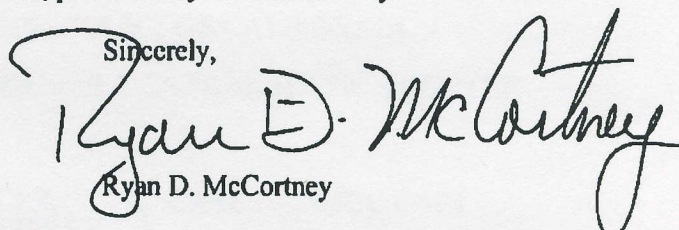 Sincerely,
Ryan D. McCortney
Ryan D. McCortney